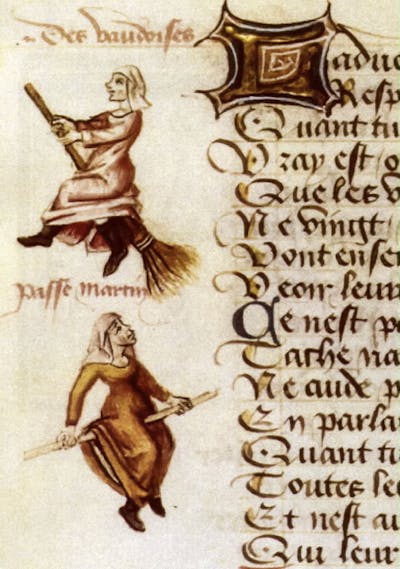 Des vaudoises
passe martin
Ladue
Resp
Quant tu
Vray est q
Que les v
Ne vingt
Vont ense
Veoir leur
Ce nest pa
Tache na
Ne aude p
En parla
Quant tu
Toutes le
Et nest au
Qui leur